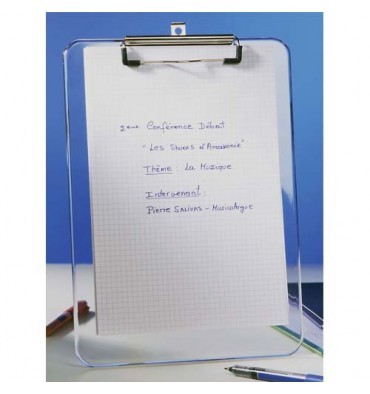 2ème Conférence Débat
"Les                d'Amaxonie"
Thème : La Musique
Intervenant :
Pierre SALIVAS - Musicologue